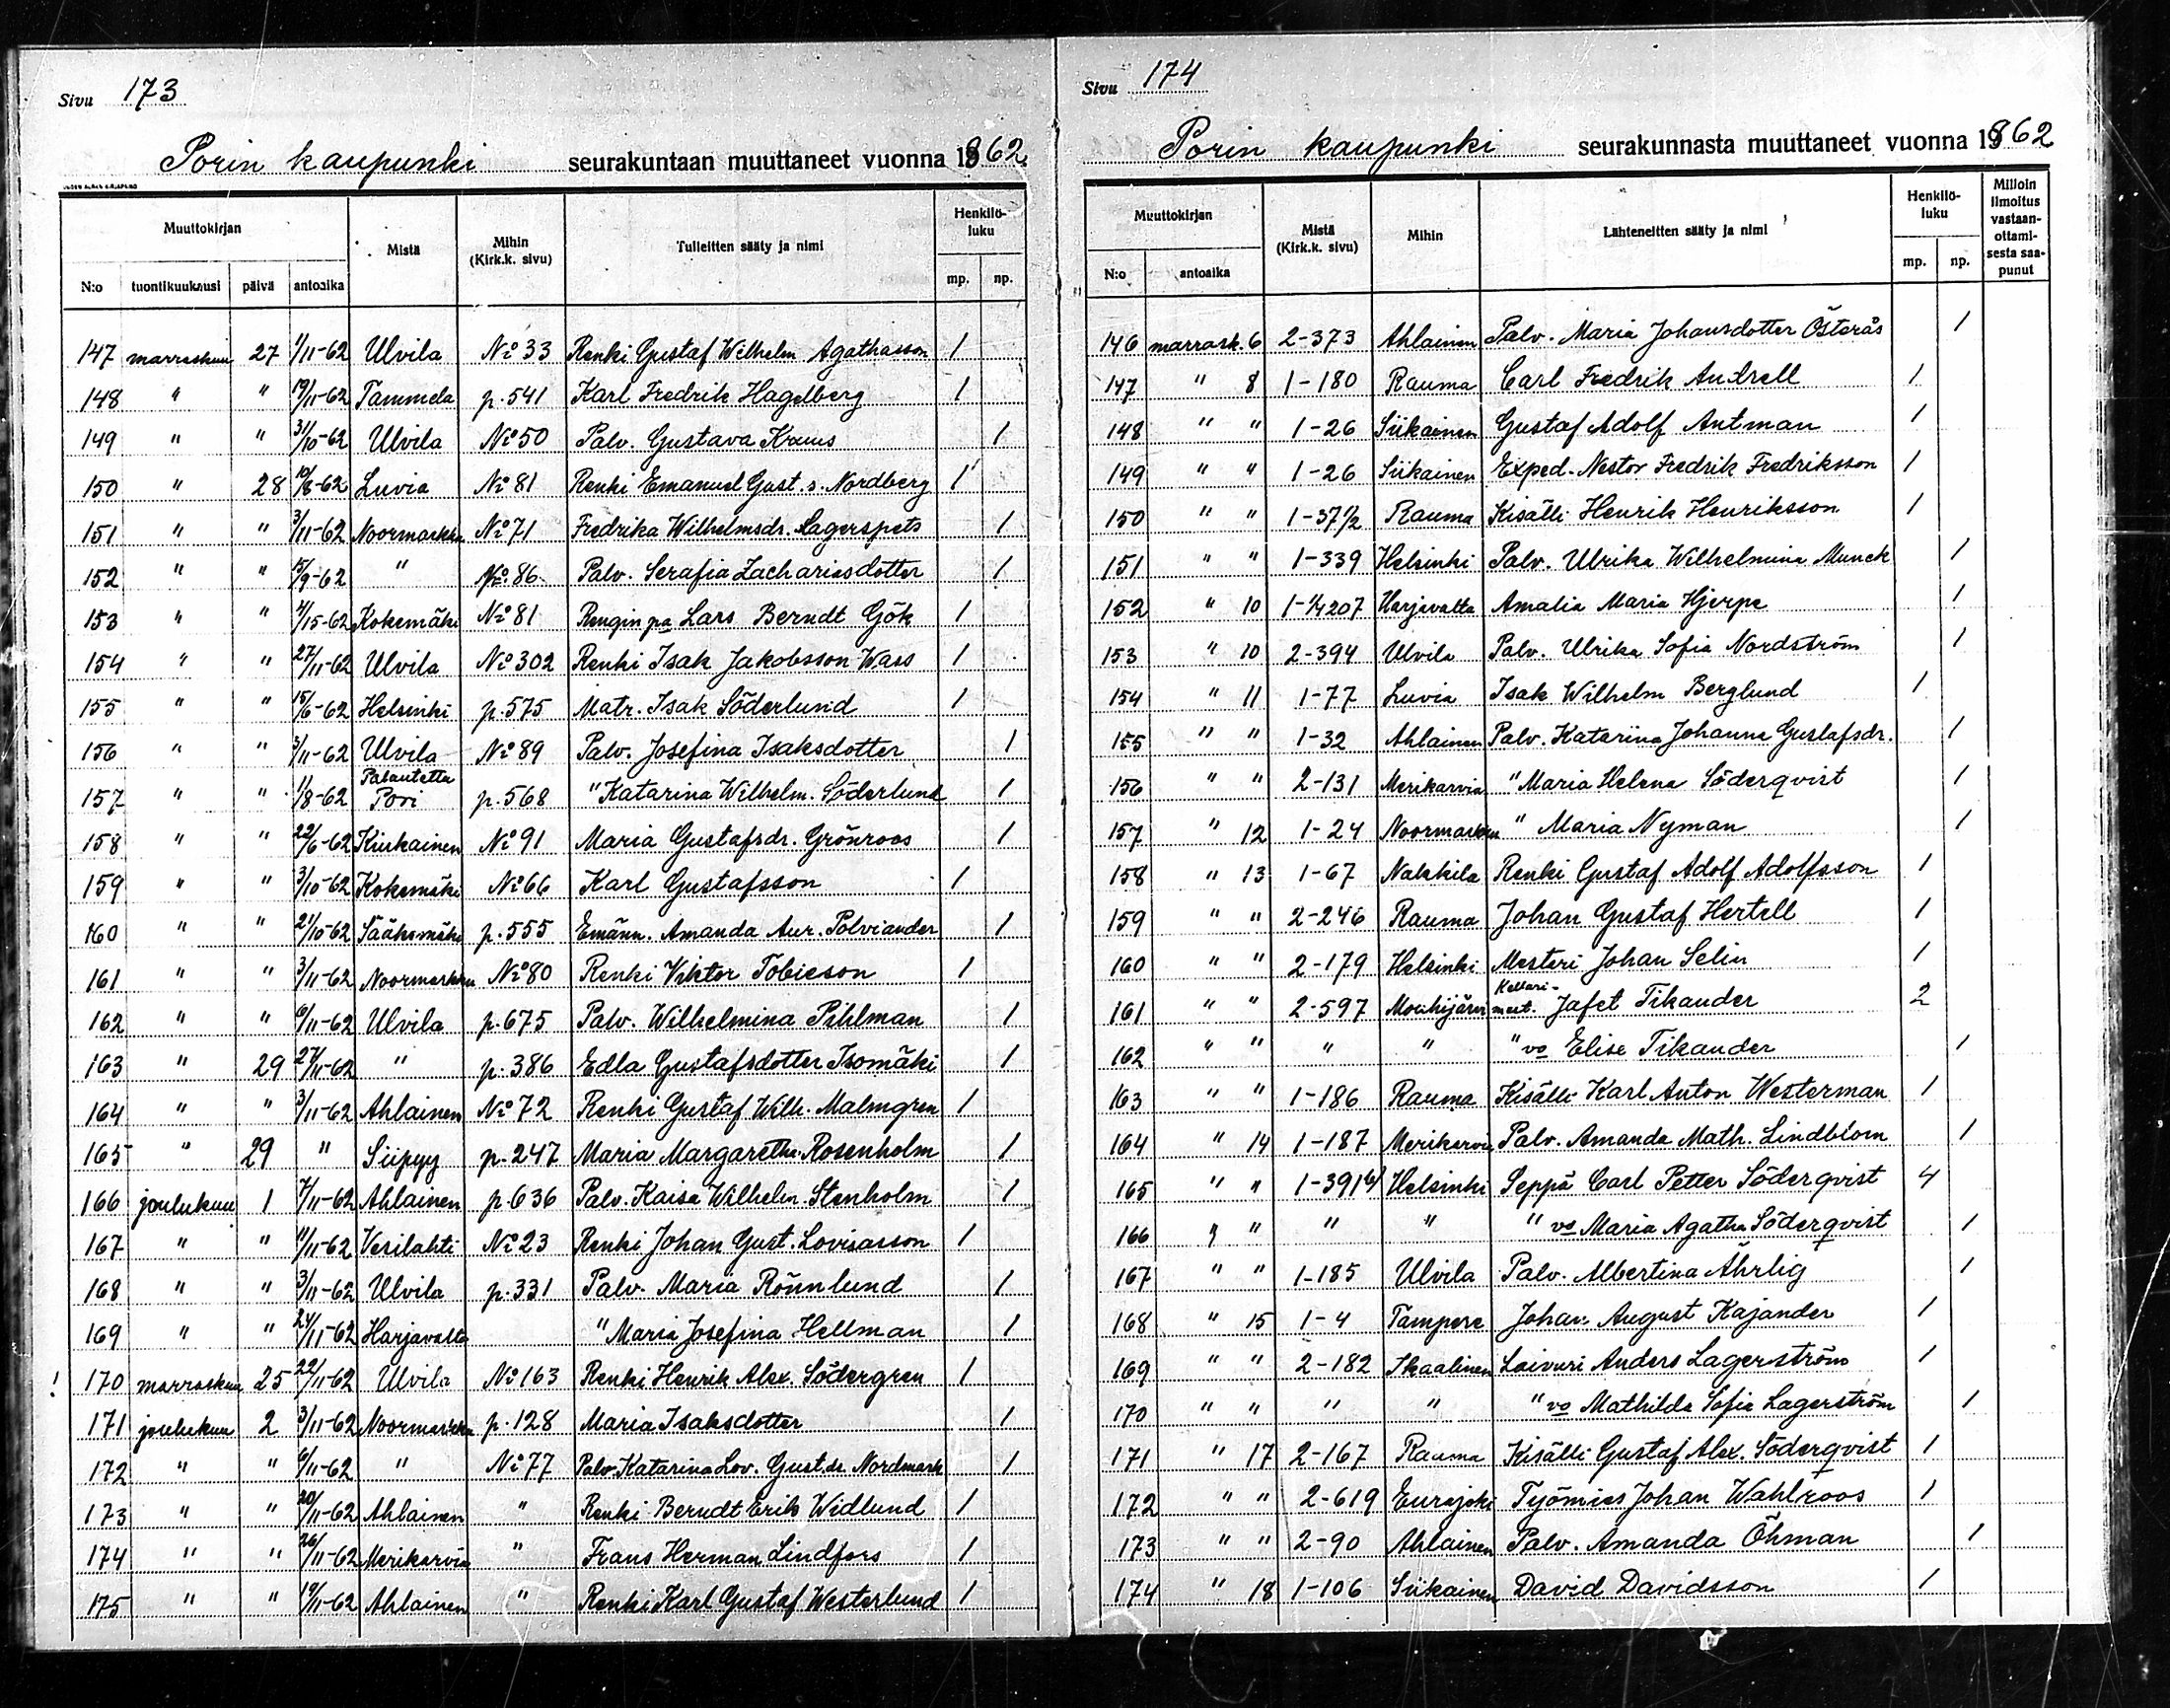 Sivu 173
Porin kaupunki seurakuntaan muuttaneet vuonna 1862
Muuttokirjan Mistä Mihin (Kirk.k. sivu) Tulleitten sääty ja nimi Henkilöluku
N:o tuontikuukausi päivä antoaika mp. np.
147 marraskuu 27 1/11-62 Ulvila No 33 Renki Gustaf Wilhelm Agathasson 1
148 " " 19/11-62 Tammela p.541 Karl Fredrik Hagelberg 1
149 " " 31/10-62 Ulvila No 50 Palv. Gustava Kruus 1
150 " 28 10/8-62 Luvia No 81 Renki Emanuel Gust.s. Nordberg 1
151 " " 3/11-62 Noormarkku No 71 Fredrika Wilhelmsdr. Lagerspets 1
152 " " 15/9-62 " No 86 Palv. Serafia Zachariasdotter 1
153 " " 4/15-62 Kokemäki No 81 Rengin pa Lars Berndt Gök 1
154 " " 27/11-62 Ulvila No 302 Renki Isak Jakobsson Wass 1
155 " " 15/6-62 Helsinki p.575 Matr. Isak Söderlund 1
156 " " 3/11-62 Ulvila No 89 Palv. Josefina Isaksdotter 1
157 " " 1/8-62 Palautettu Pori p.568 " Katarina Wilhelm. Söderlund 1
158 " " 22/6-62 Kiukainen No 91 Maria Gustafsdr. Grönroos 1
159 " " 3/10-62 Kokemäki No 66 Karl Gustafsson 1
160 " " 21/10-62 Sääksmäki p.555 Emänn. Amanda Aur. Polviander 1
161 " " 3/11-62 Noormarkku No 80 Renki Viktor Tobieson 1
162 " " 6/11-62 Ulvila p.675 Palv. Wilhelmina Pihlman 1
163 " 29 27/11-62 " p.386 Edla Gustafsdotter Isomäki 1
164 " " 3/11-62 Ahlainen No 72 Renki Gustaf Wilh. Malmgren 1
165 " 29 " Siipyy p.247 Maria Margaretha Rosenholm 1
166 joulukuu 1 7/11-62 Ahlainen p.636 Palv. Kaisa Wilhelm. Stenholm 1
167 " " 11/11-62 Vesilahti No 23 Renki Johan Gust. Lovisasson 1
168 " " 3/11-62 Ulvila p.331 Palv. Maria Rönnlund 1
169 " " 24/11-62 Harjavalta " Maria Josefina Hellman 1
! 170 marraskuu 25 22/11-62 Ulvila No 163 Renki Henrik Alex. Södergren 1
171 joulukuu 2 3/11-62 Noormarkku p.128 Maria Isaksdotter 1
172 " " 6/11-62 " No 77 Palv. Katarina Lov. Gust.dr. Nordmark 1
173 " " 20/11-62 Ahlainen " Renki Berndt Erik Widlund 1
174 " " 26/11-62 Merikarvia " Frans Herman Lindfors 1
175 " " 19/11-62 Ahlainen " Renki Karl Gustaf Westerlund 1
Sivu 174
Porin kaupunki seurakunnasta muuttaneet vuonna 1862
Muuttokirjan Mistä (Kirk.k. sivu) Mihin Lähteneitten sääty ja nimi Henkilöluku Milloin ilmoitus vastaanottamisesta saapunut
N:o antoaika mp. np.
146 marrask. 6 2-373 Ahlainen Palv. Maria Johansdotter Österås 1
147 " 8 1-180 Rauma Carl Fredrik Andrell 1
148 " " 1-26 Siikainen Gustaf Adolf Antman 1
149 " " 1-26 Siikainen Exped. Nestor Fredrik Fredriksson 1
150 " " 1-37 1/2 Rauma Kisälli Henrik Henriksson 1
151 " " 1-339 Helsinki Palv. Ulrika Wilhelmina Munck 1
152 " 10 1-1/4207 Harjavalta Amalia Maria Hjerpe 1
153 " 10 2-394 Ulvila Palv. Ulrika Sofia Nordström 1
154 " 11 1-77 Luvia Isak Wilhelm Berglund 1
155 " " 1-32 Ahlainen Palv. Katarina Johanna Gustafsdr. 1
156 " " 2-131 Merikarvia " Maria Helena Söderqvist 1
157 " 12 1-24 Noormarkku " Maria Nyman 1
158 " 13 1-67 Nakkila Renki Gustaf Adolf Adolfsson 1
159 " " 2-246 Rauma Johan Gustaf Hertell 1
160 " " 2-179 Helsinki Mestari Johan Selin 1
161 " " 2-597 Mouhijärvi Kellarimest. Jafet Tikander 2
162 " " " " " vo Elise Tikander 1
163 " " 1-186 Rauma Kisälli Karl Anton Westerman 1
164 " 14 1-187 Merikarvia Palv. Amanda Math. Lindblom 1
165 " " 1-391 Helsinki Seppä Carl Petter Söderqvist 4
166 " " " " " vo Maria Agatha Söderqvist 1
167 " " 1-185 Ulvila Palv. Albertina Ährlig 1
168 " 15 1-4 Tampere Johan August Kajander 1
169 " " 2-182 Ikaalinen Laivuri Anders Lagerström 1
170 " " " " " vo Mathilda Sofia Lagerström 1
171 " 17 2-167 Rauma Kisälli Gustaf Alex. Söderqvist 1
172 " " 2-619 Eurajoki Työmies Johan Wahlroos 1
173 " " 2-90 Ahlainen Palv. Amanda Öhman 1
174 " 18 1-106 Siikainen David Davidsson 1